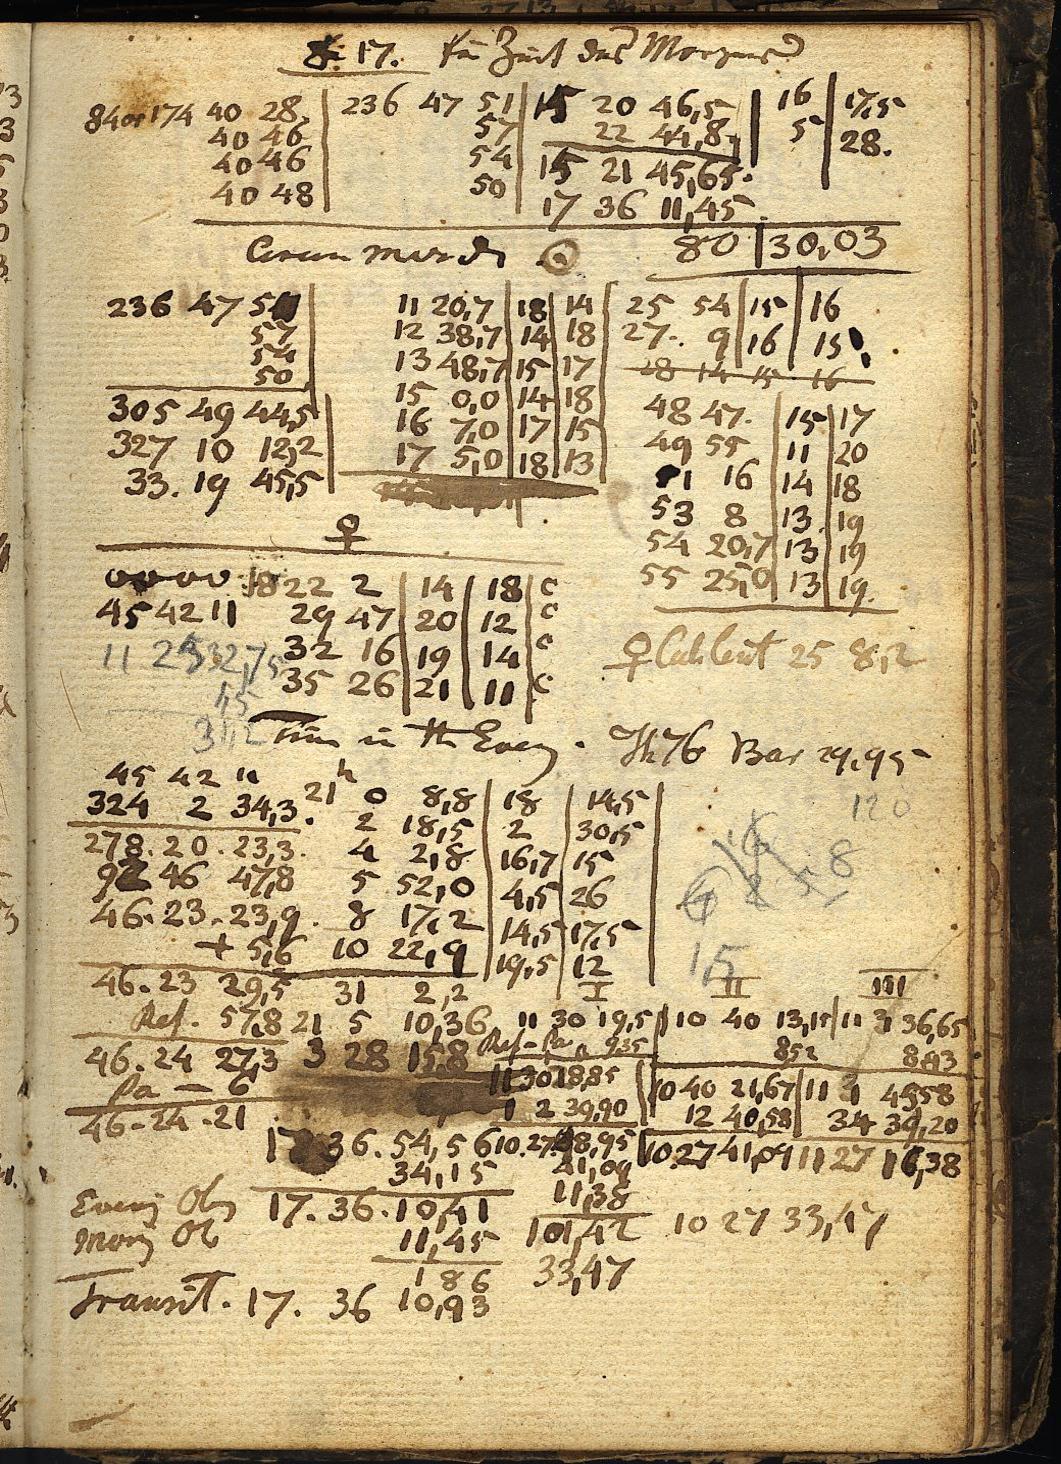 17. für Zeit des Morgens
84 or 174 40 28 236 47 51 15 20 46,5 16 17,5
40 46 57 22 44,8 5 28.
40 46 54 15 21 45,65.
40 48 50 17 36 11,45
80 30,03
☉
236 47 51 11 20,7 18 14 25 54 15 16
57 12 38,7 14 18 27. 9 16 15
54 13 48,7 15 17 28 14 15 16
50 15 0,0 14 18 48 47. 15 17
305 49 44,5 16 7,0 17 15 49 55 11 20
327 10 12,2 17 5,0 18 13 51 16 14 18
33. 19 45,5 53 8 13 19
♀ 54 20,7 13 19
55 25,0 13 19.
18 22 2 14 18 c
45 42 11 29 47 20 12 c
11 25 32,75 32 16 19 14 c
45 35 26 21 11 c
31,2
♀ 25 8,2
Time in the Eveng. Th 76 Bar 29,95
45 42 11
324 2 34,3. 21h 0 8,8 18 14,5 120
2 18,5 2 30,5
278. 20. 23,3. 4 2,8 16,7 15 8
92 46 47,8 5 52,0 4,5 26
46. 23. 23,9. 8 17,2 14,5 17,5
+ 5,6 10 22,9 19,5 12 15
46. 23 29,5 31 2,2 I II III
Ref. 57,8 21 5 10,36 11 30 19,5 10 40 13,15 11 3 36,65
46. 24 27,3 3 28 15,8 Ref - Pa 9,35 8,52 8,93
Pa — 6 11 30 28,85 10 40 21,67 11 3 45,58
46 - 24 - 21 1 2 39,90 12 40,58 34 39,20
17 36. 54,56 10.27.48,95 10 27 41,09 11 27 16,38
34,15 41,09
11,38
Eveng Obs 17. 36. 10,41 101,42 10 27 33,47
Morng Ob 11,45 33,47
1 86
Transit. 17. 36 10,93